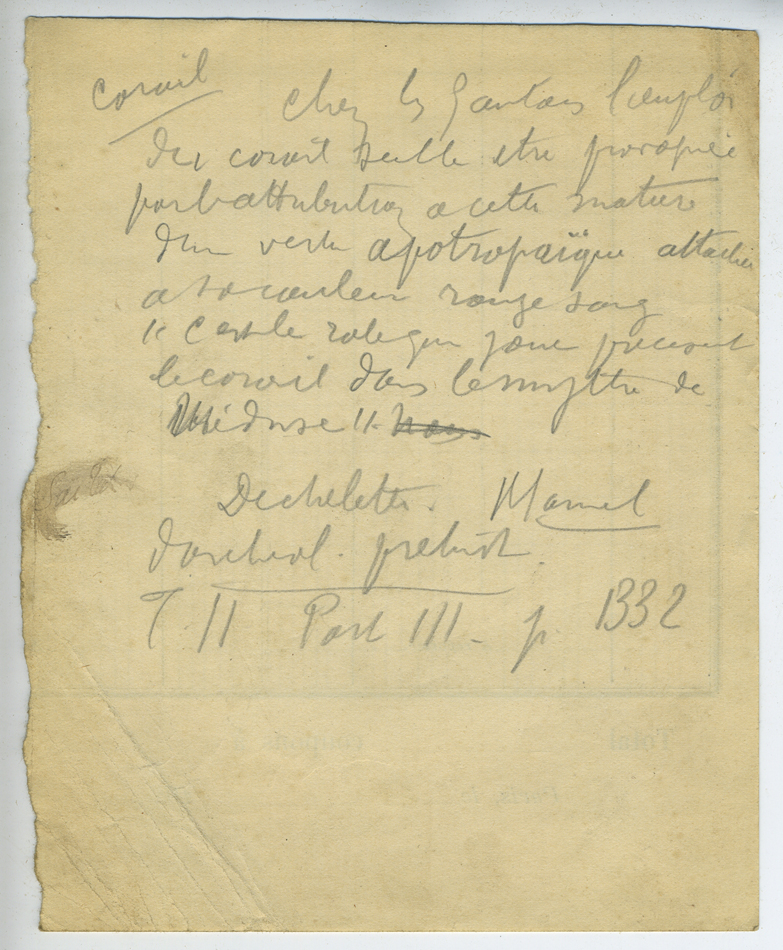 corail
chez les Gaulois l'emploi
du corail semble etre provoquée
par l'attribution a cette matiere
d'un vertu apotropaïque attachée
a sa couleur rouge sang
" C'est le role que joue précisent
le corail dans le mythe de
Méduse "
Dechelette. Manuel
d'archeol. prehist.
T II Part III - p 1332